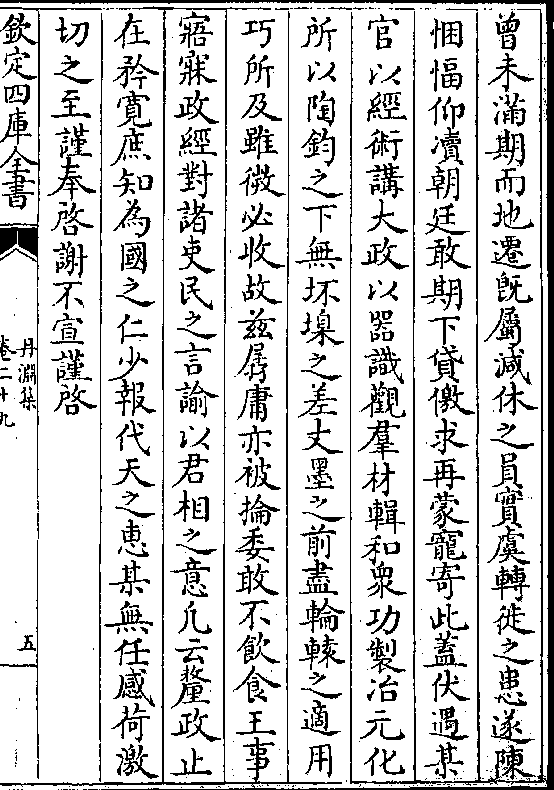 曾未滿期而地遷旣屬減休之員實虞轉徙之患遂陳
悃愊仰瀆朝廷敢期下貸儌求再蒙寵寄此蓋伏遇某
官以經術講大政以器識觀羣材輯和衆功製冶元化
所以陶鈞之下無坏堁之差丈墨之前盡輪轅之適用
巧所及雖微必收故兹孱庸亦被掄委敢不飲食王事
寤寐政經對諸吏民之言諭以君相之意凡云釐政止
在矜寛庶知為國之仁少報代天之恵某無任感荷激
切之至謹奉啓謝不宣謹啓
欽定四庫全書
丹淵集
卷二十九
五